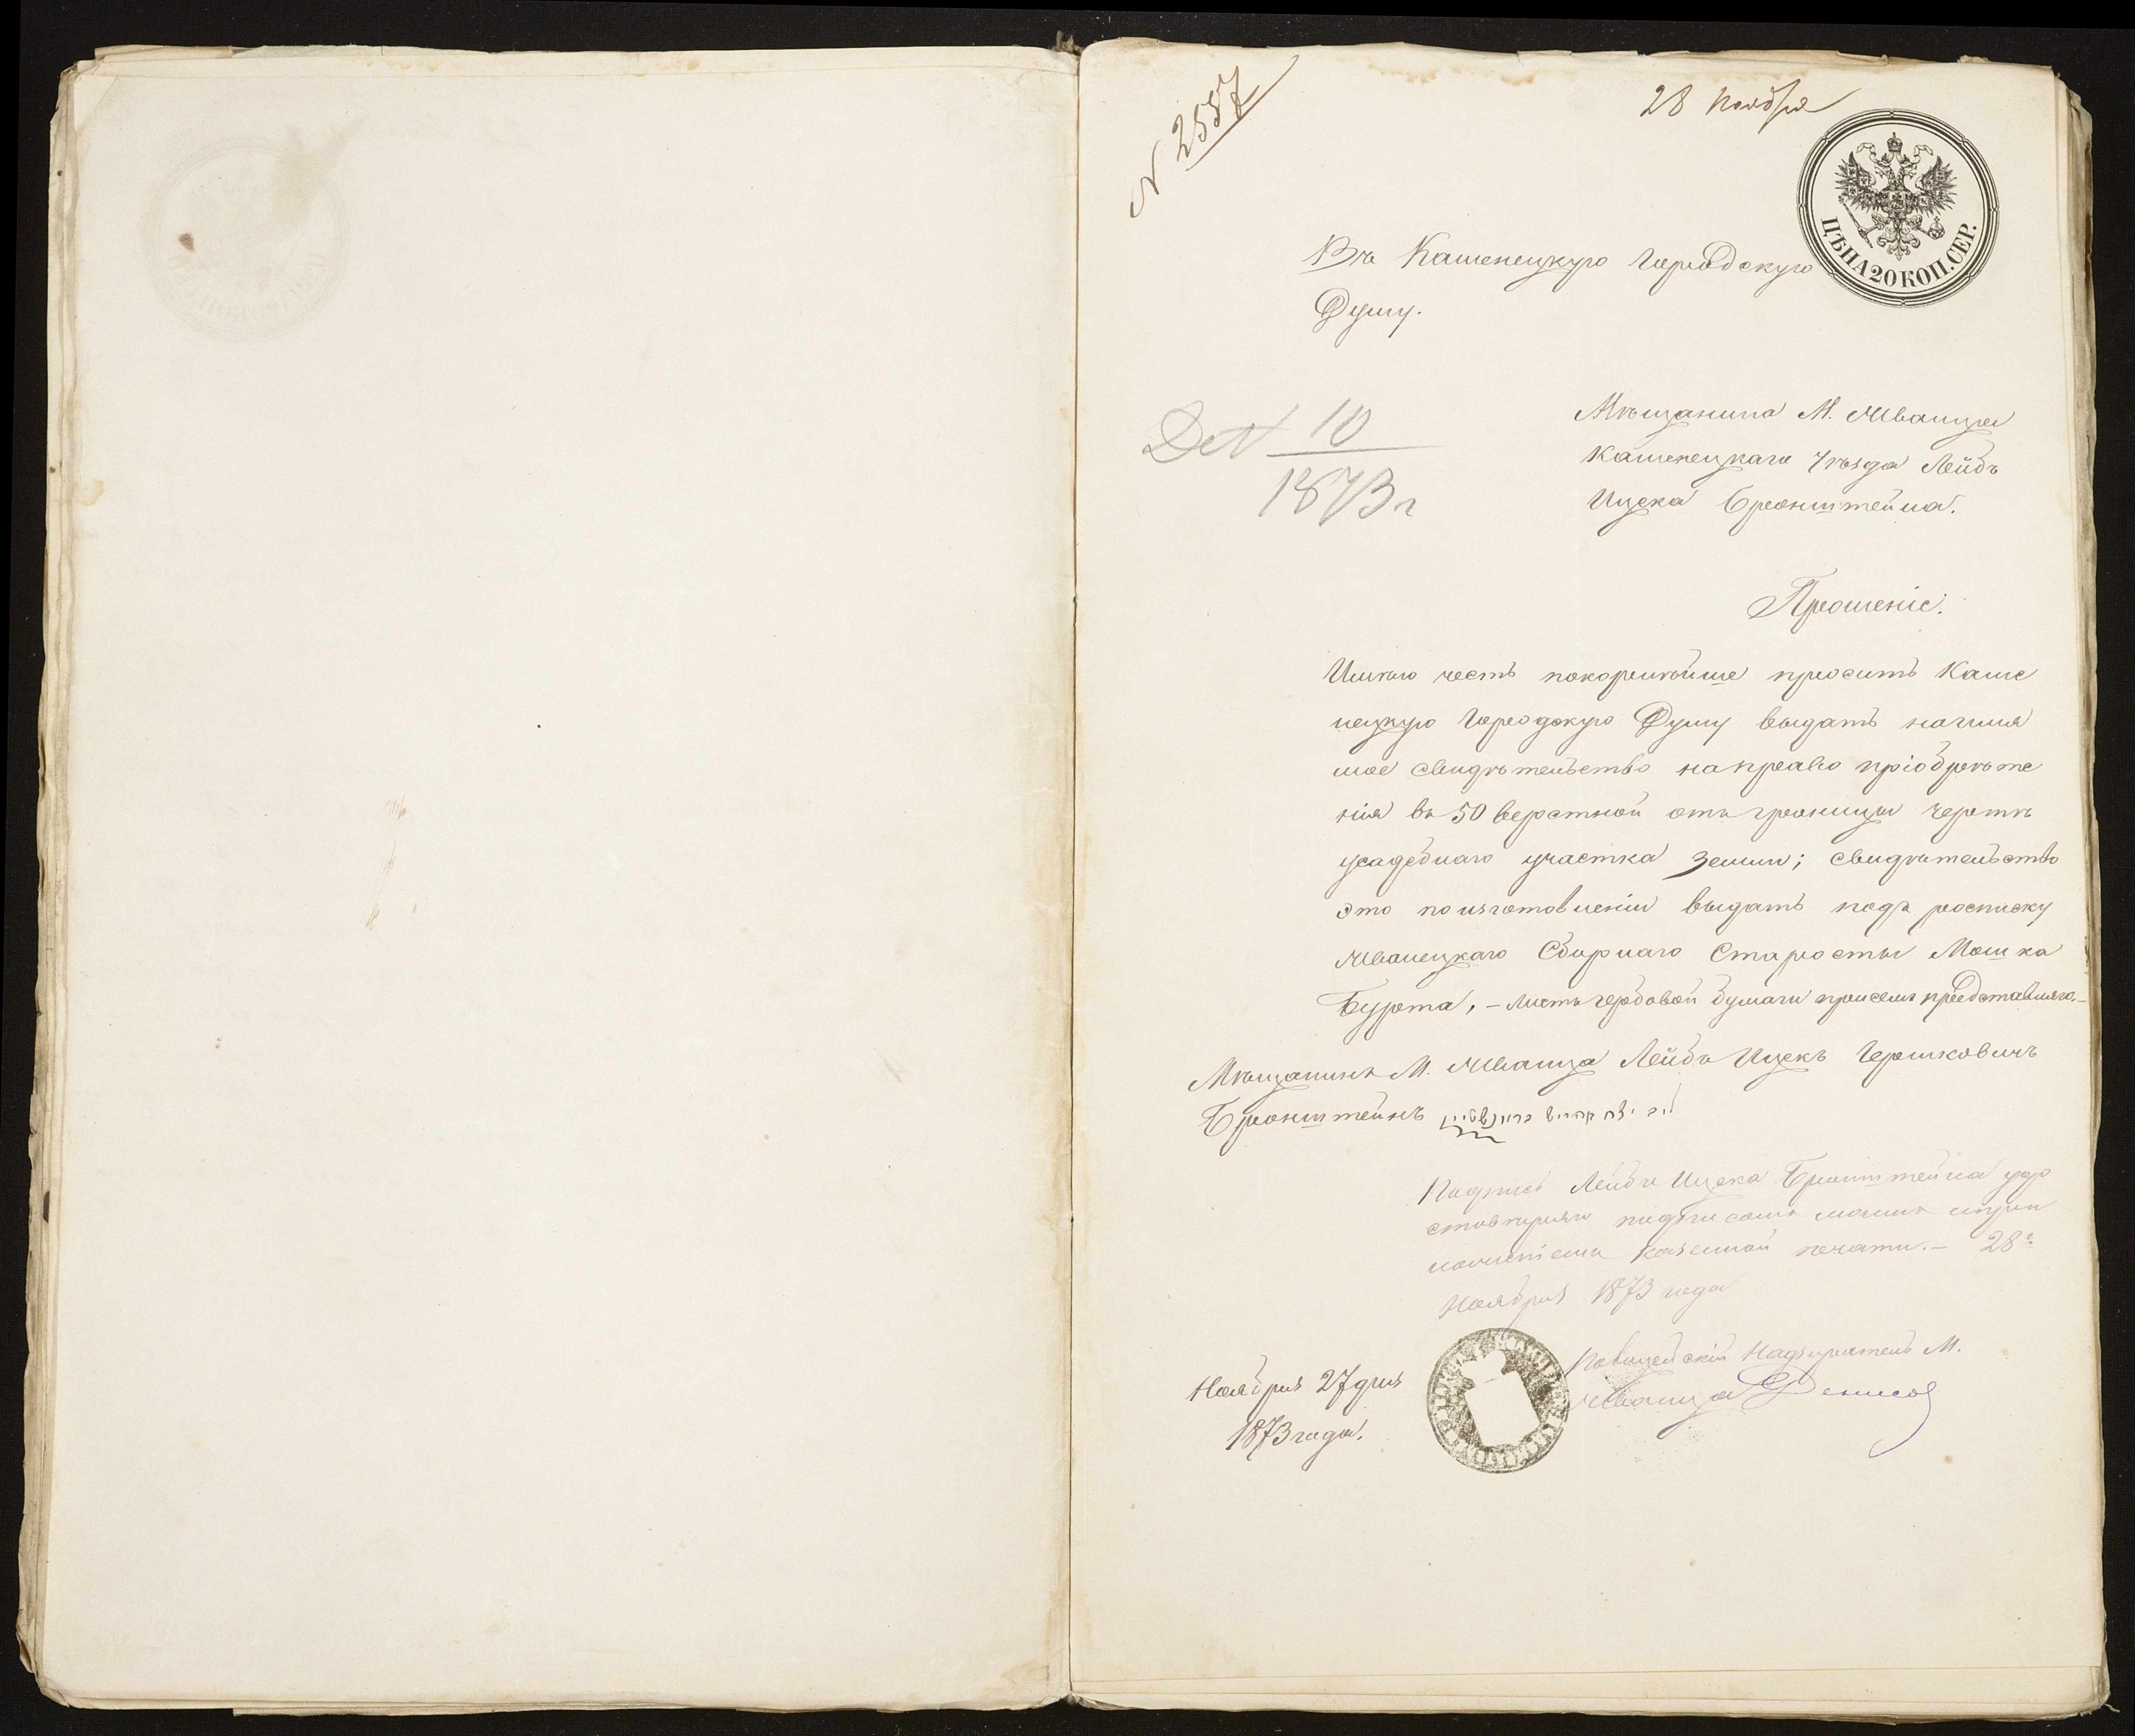 N 2557
28 Ноября
ЦѢНА 20 КОП. СЕР.
Въ Каменецкую Городскую
Думу.
Мѣщанина М. Жванца
Каменецкаго Уѣзда Лейбъ
Ицека Бронштейна.
10
1873 г
Прошеніе.
Имѣю честь покорнѣйше просить Каме
нецкую Городскую Думу выдать на имя
мое свидѣтельство на право пріобрѣте
нія въ 50 верстной отъ границы чертѣ
усадебнаго участка земли; свидѣтельство
это по изготовленіи выдать подъ росписку
Жванецкаго Сборнаго Старосты Мошка
Бурта, – листъ гербовой бумаги при семъ представляю. –
Мѣщанинъ М. Жванца Лейбъ Ицекъ Гершковичъ
Бронштейнъ
Подпись Лейбы Ицека Бронштейна удо
стовѣряю подписомъ моимъ и при
ложеніемъ казенной печати. – 28го
Ноября 1873 года
Полицейскій Надзиратель М.
Жванца Денисов
Ноября 27 дня
1873 года.